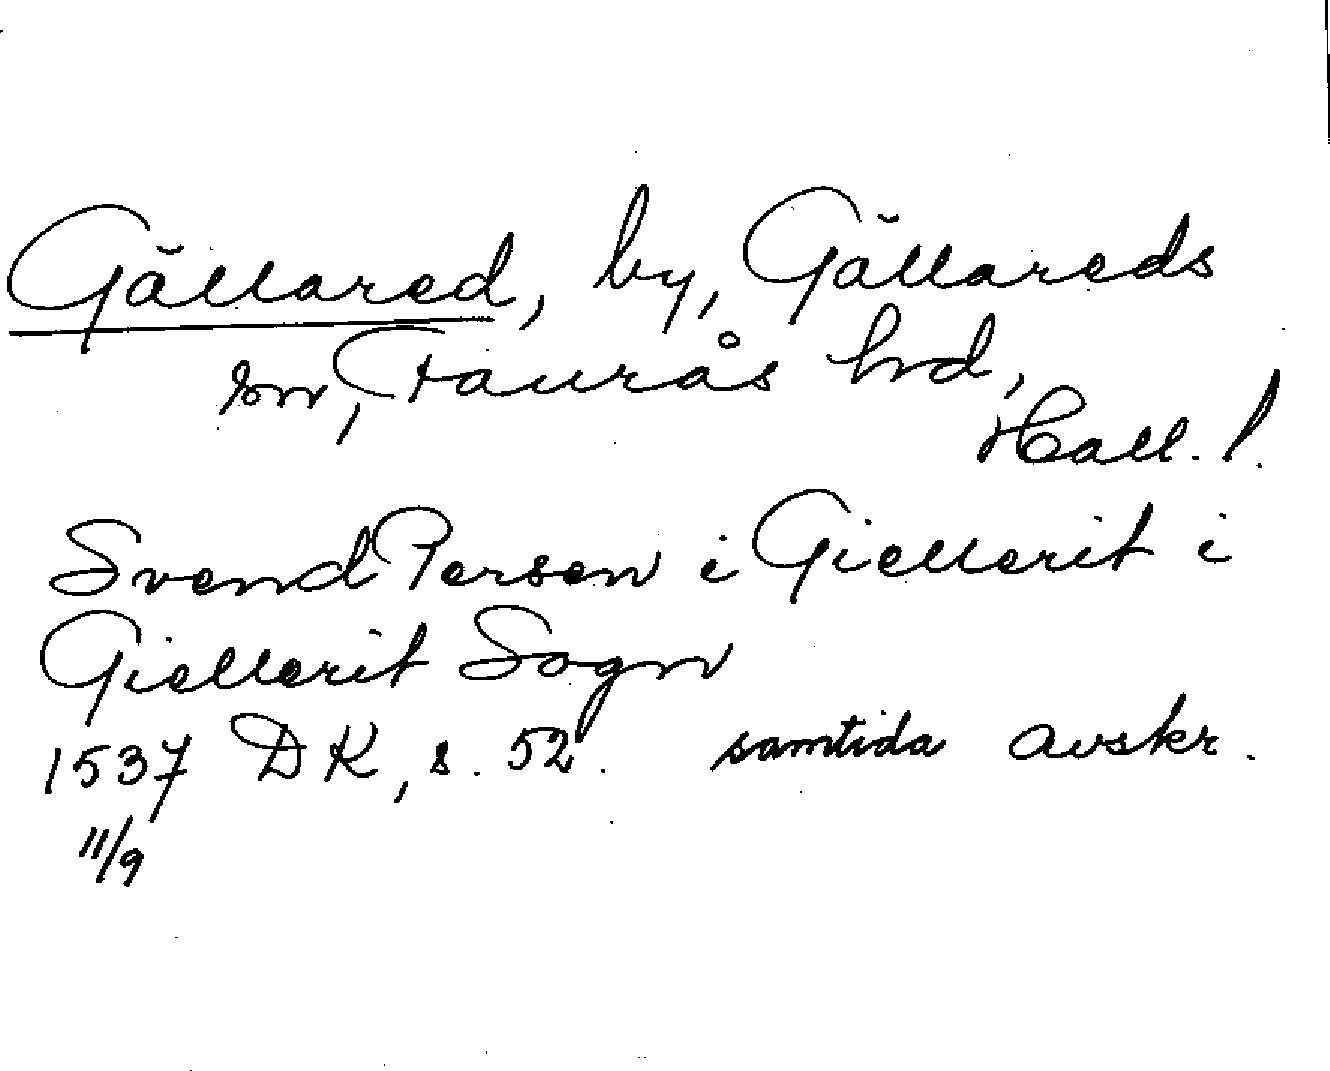 Gällared, by, Gällareds
sn, Faurås hrd,
Hall. l.
Svend Persen i Giellerit i
Giellerit Sogn
1537 DK, s. 52. samtida avskr.
11/9